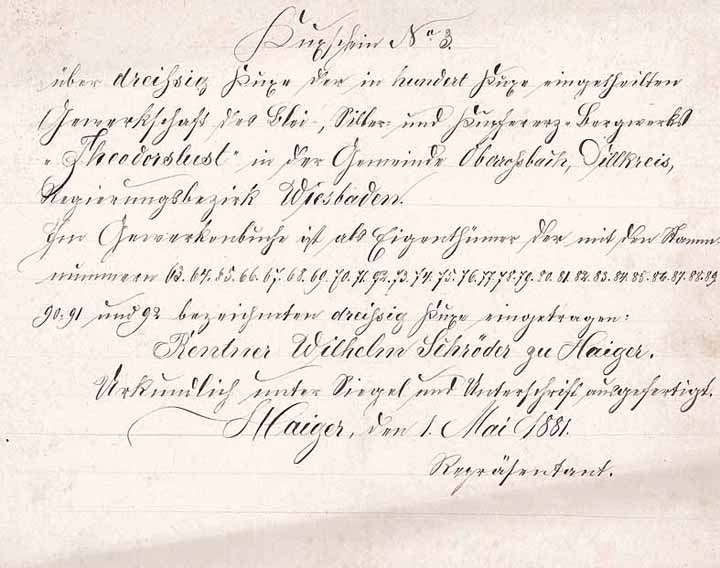 Kuxschein No 3.
über dreißig Kuxe der in hundert Kuxe eingetheilten
Gewerkschaft des Blei-, Silber- und Kupfererz-Bergwerks
"Theodorslust" in der Gemeinde Oberroßbach, Dillkreis,
Regierungsbezirk Wiesbaden.
Im Gewerkenbuche ist als Eigenthümer der mit den Stamm-
nummern 63. 64. 65. 66. 67. 68. 69. 70. 71. 72. 73. 74. 75. 76. 77. 78. 79. 80. 81. 82. 83. 84. 85. 86. 87. 88. 89
90. 91 und 92 bezeichneten dreißig Kuxe eingetragen:
Rentner Wilhelm Schröder zu Haiger.
Urkundlich unter Siegel und Unterschrift ausgefertigt.
Haiger, den 1. Mai 1881.
Repräsentant.